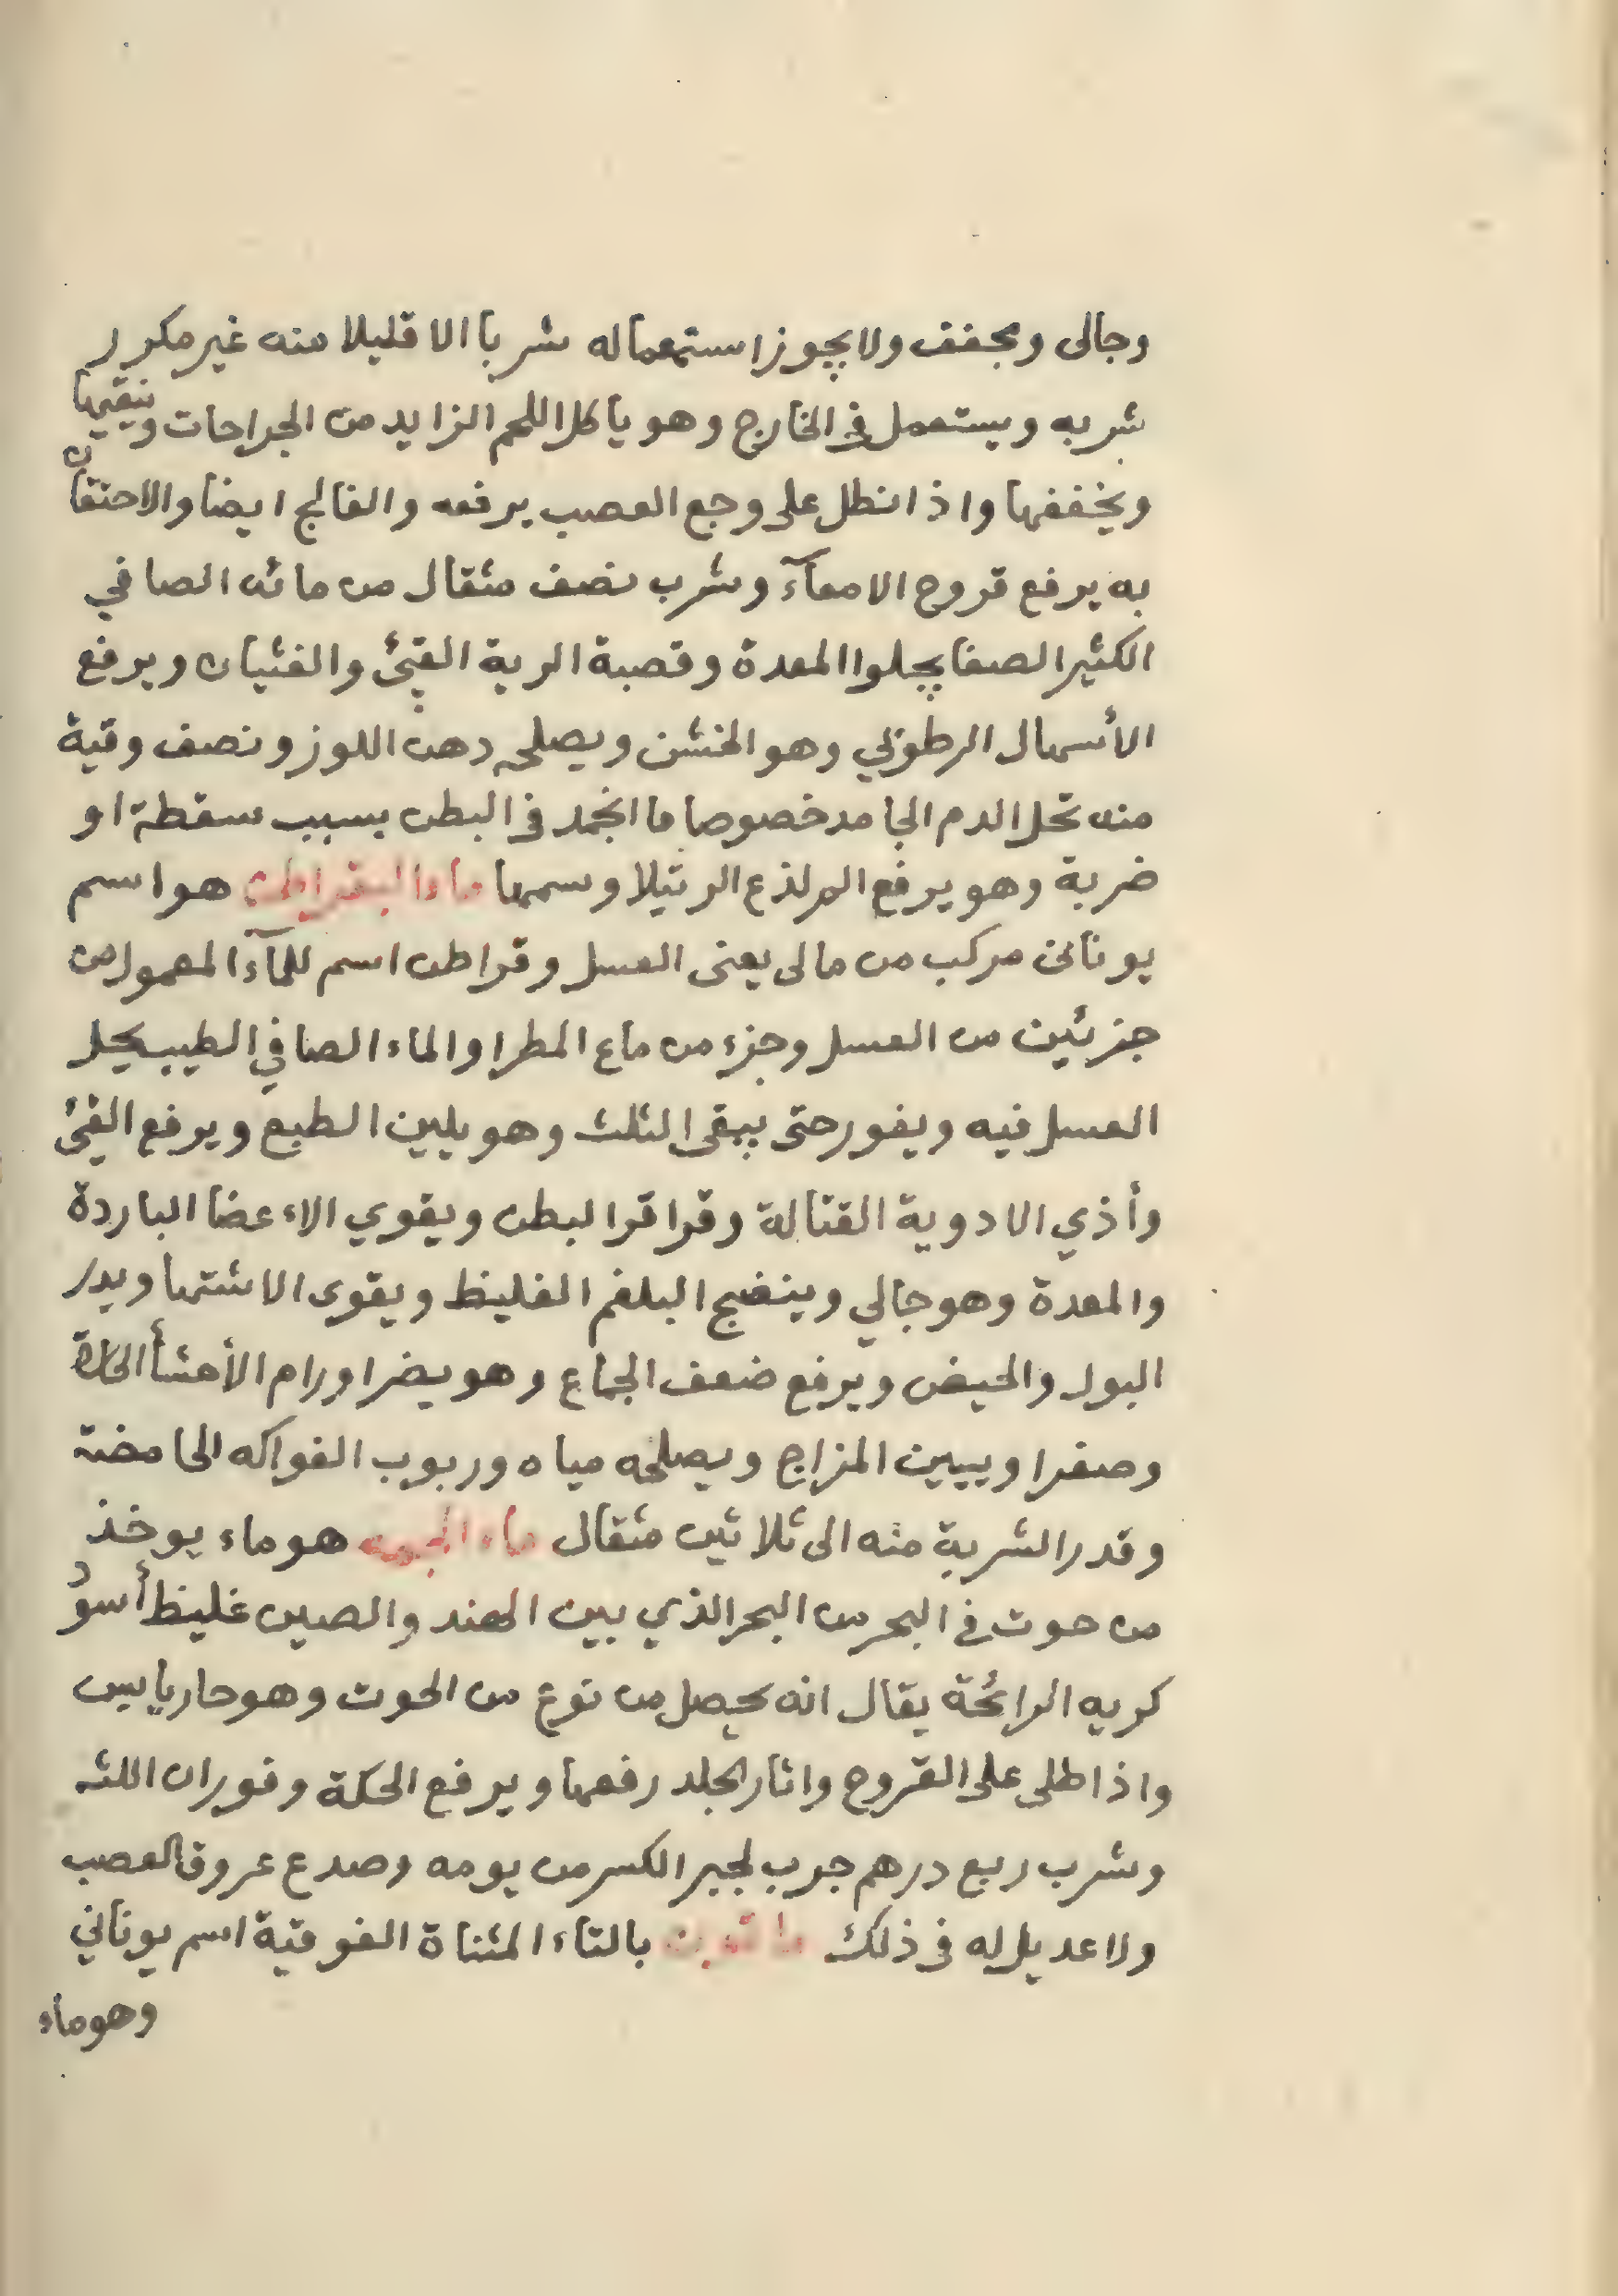 وجالى ومجفف ولا يجوز استعماله شربا الا قليلا منه غير مكرر
شربه ويستعمل في الخارج وهو ياكل اللحم الزايد من الجراحات وينقيها
ويخففها واذا نطل على وجع العصب يرفعه والفالج ايضا والاحتقان
به يرفع قروح الامعآء وشرب نصف مثقال من مائه الصافي
الكثير الصفا يجلوا المعدة وقصبة الرية القيئ والغثيان ويرفع
الأسهال الرطوبي وهو الخشن ويصلحه دهن اللوز ونصف وقية
منه تحل الدم الجامد خصوصا ما انجمد في البطن بسبب سقطة او
ضربة وهو يرفع الم لذع الرتيلا وسمها هو اسم
يونانى مركب من مالى يعنى العسل وقراطن اسم للمآء المعمول من
جزئين من العسل وجزء من ماء المطر او الماء الصافي الطيب يحل
العسل فيه ويفور حتى يبقى الثلث وهو يلين الطبع ويرفع القئ
وأذي الادوية القتالة وقراقر البطن ويقوي الاعضا الباردة
والمعدة وهو جالي وينضج البلغم الغليظ ويقوى الاشتها ويدر
البول والحيض ويرفع ضعف الجماع وهو يضر اورام الأحشأ الحارة
وصفراويين المزاج ويصلحه مياه وربوب الفواكه الحامضة
وقدر الشربة منه الى ثلاثين مثقال ماء هو ماء يوخذ
من حوت في البحر من البحر الذي بين الهند والصين غليظ أسود
كريه الرائحة يقال انه يحصل من نوع من الحوت وهو حار يابس
واذا طلى على القروح واثار الجلد رفعها ويرفع الحكة وفوران اللثه
وشرب ربع درهم جرب لجبر الكسر من يومه وصدع عروق العصب
ولا عديل له في ذلك بالتاء المثناة الفوقية اسم يوناني
وهو ماء